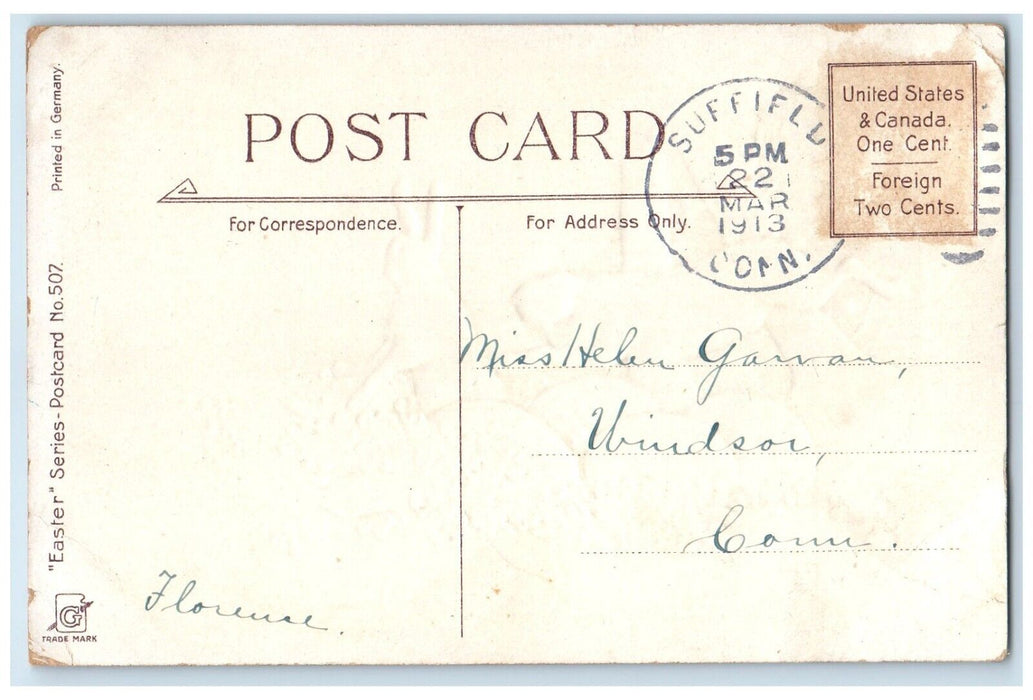 Printed in Germany.
"Easter" Series-Postcard No. 507.
G
TRADE MARK
POST CARD
For Correspondence.
For Address Only.
SUFFIELD
5 PM
22
MAR
1913
CONN.
United States
& Canada.
One Cent.
Foreign
Two Cents.
Miss Helen Garvan,
Windsor,
Conn.
Florence.